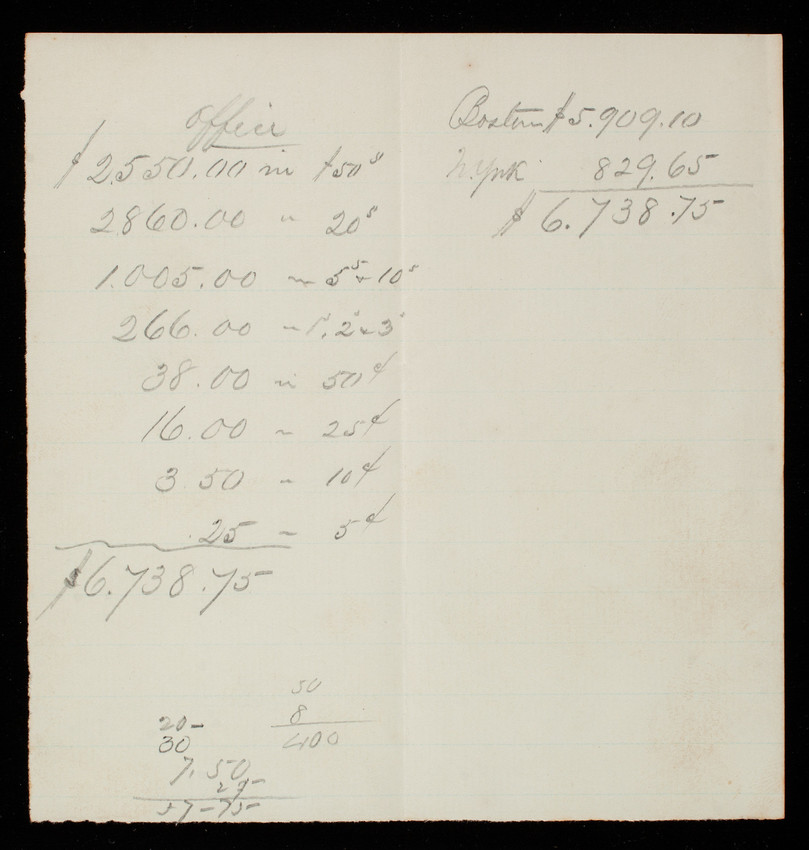 office
$2550.00 in $50s
2860.00 " 20s
1.005.00 " 5s & 10s
266.00 " 1s, 2s & 3s
38.00 in 50¢
16.00 " 25¢
3.50 " 10¢
.25 " 5¢
$6.738.75
50
8
400
20-
30
7.50
25
57-75
Boston $5.909.10
N. York 829.65
$6.738.75